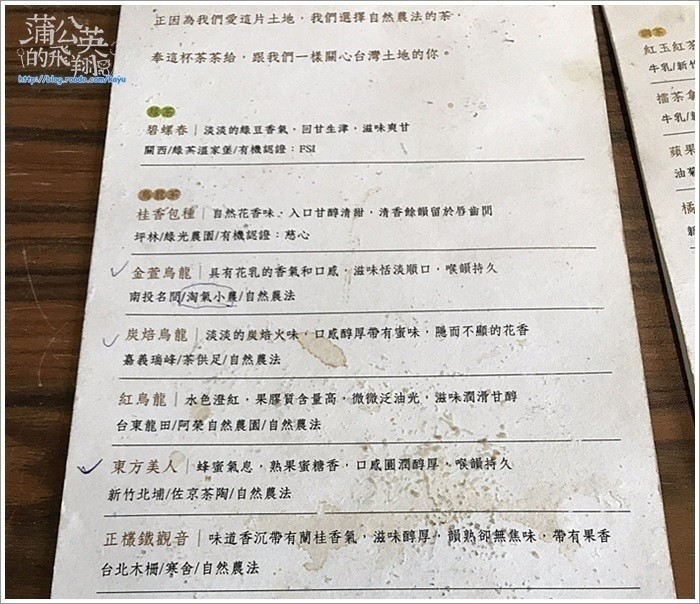 蒲公英
的飛翔
http://blog.roodo.com/kayu
正因為我們愛這片土地，我們選擇自然農法的茶．
奉這杯茶茶給，跟我們一樣關心台灣土地的你。
綠茶
碧螺春｜淡淡的綠豆香氣，回甘生津，滋味爽甘
關西/綠茶溫家堡/有機認證：FSI
烏龍茶
桂香包種｜自然花香味、入口甘醇清甜，清香餘韻留於唇齒間
坪林/綠光農園/有機認證：慈心
金萱烏龍｜具有花乳的香氣和口感，滋味恬淡順口，喉韻持久
南投名間/淘氣小農/自然農法
炭焙烏龍｜淡淡的炭焙火味，口感醇厚帶有蜜味，隱而不顯的花香
嘉義瑞峰/茶供足/自然農法
紅烏龍｜水色澄紅，果膠質含量高，微微泛油光，滋味潤滑甘醇
台東龍田/阿榮自然農園/自然農法
東方美人｜蜂蜜氣息，熟果蜜糖香，口感圓潤醇厚，喉韻持久
新竹北埔/佐京茶陶/自然農法
正欉鐵觀音｜味道香沉帶有蘭桂香氣，滋味醇厚，韻熟卻無焦味，帶有果香
台北木柵/寒舍/自然農法
調茶
紅玉紅茶
牛乳/新竹
擂茶拿
牛乳/新
蘋果
油菊
橘
新